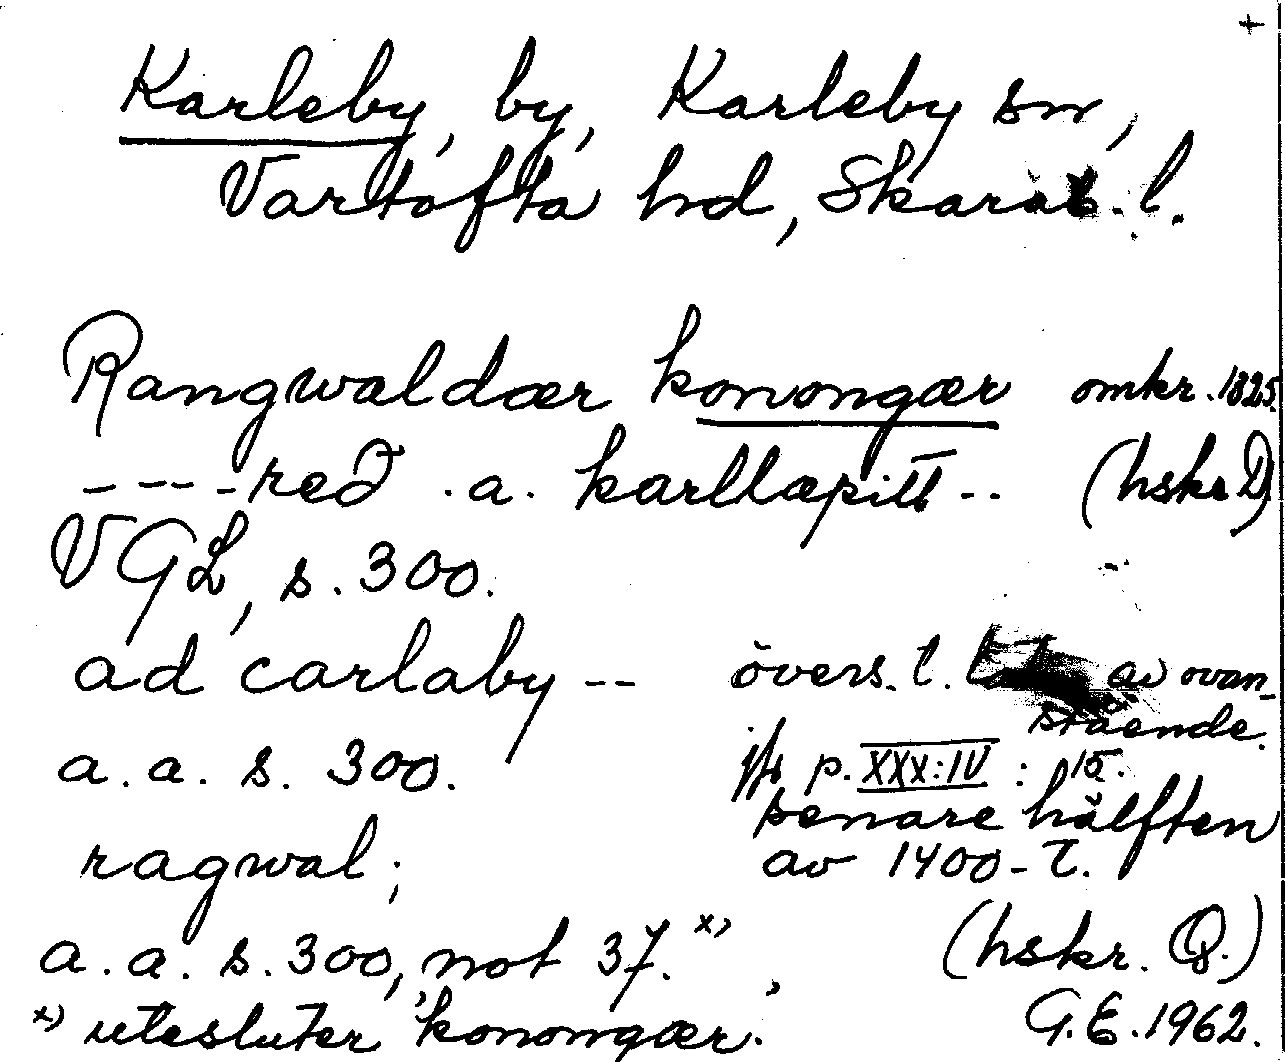 +
Karleby, by, Karleby sn,
Vartofta hd, Skarab. l.
Rangwaldær konongær omkr. 1325.
----reð .a. karllæpitt -- (hskr D)
VGL, s. 300.
ad carlaby -- övers. t. av ovan-
stående.
a. a. s. 300. jfr p. XXX:IV : 15.
senare hälften
ragwal; av 1400-t.
a. a. s. 300, not 37. x) (hskr. Q.)
x) utesluter 'konomgær. G.E. 1962.